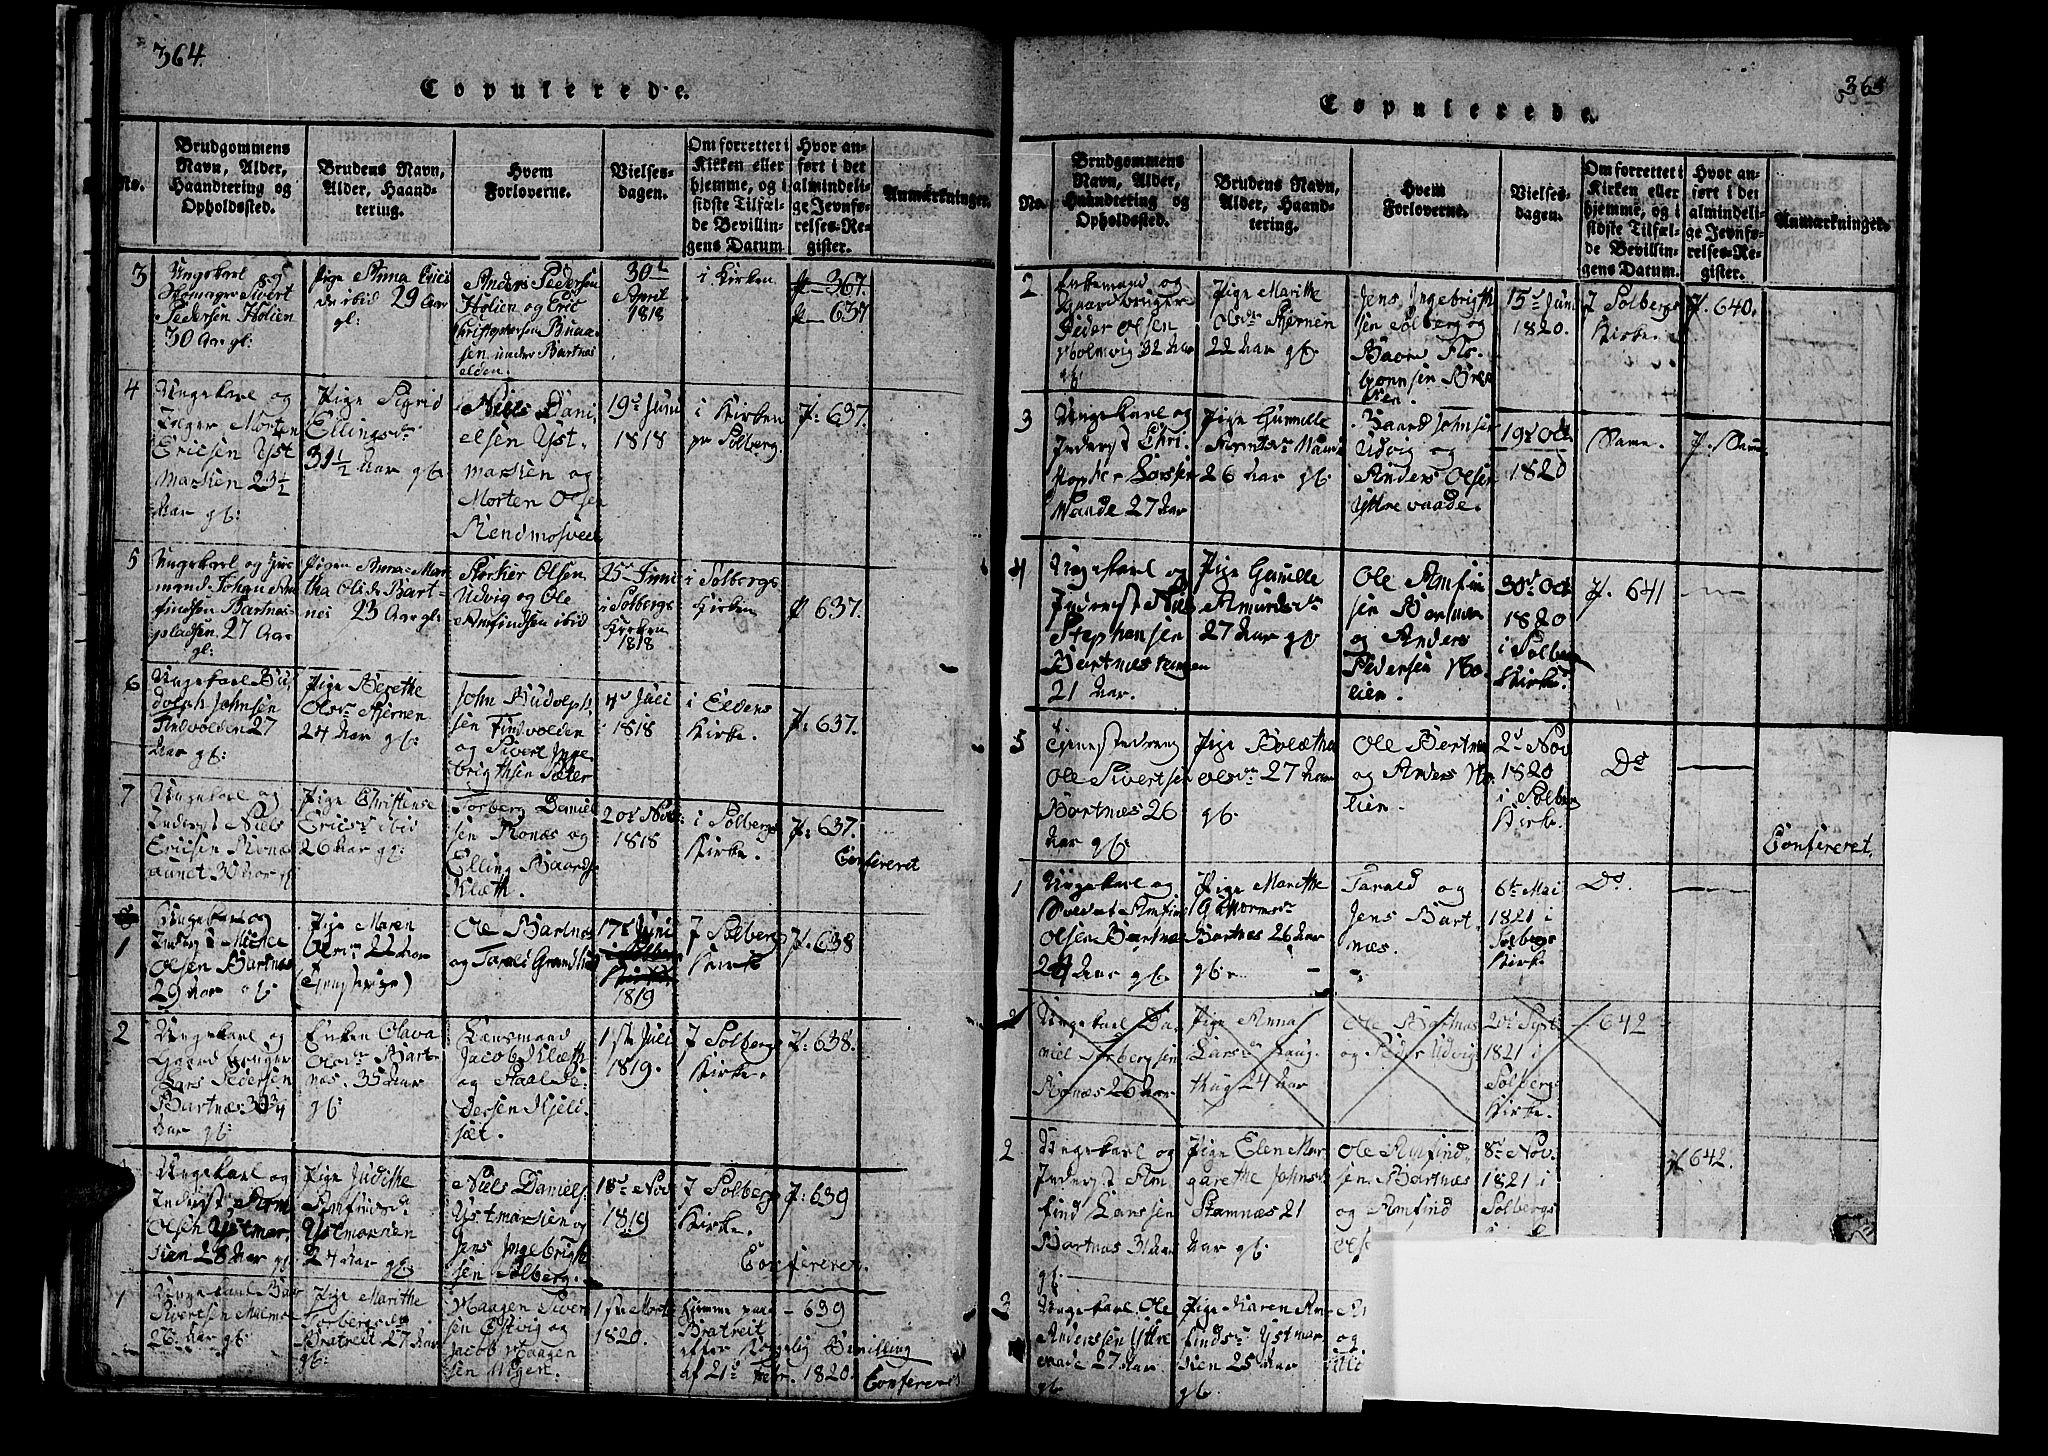 364.
Copulerede.
No.
Brudgommens
Navn, Alder,
Haandtering og
Opholdssted.
Brudens Navn,
Alder, Haand-
tering.
Hvem
Forloverne.
Vielses-
dagen.
Om forrettet i
Kirken eller
hjemme, og i
sidste Tilfæl-
de Bevillin-
gens Datum
Hvor an-
ført i det
almindeli-
ge Jevnfø-
relses-Re-
gister.
Anmærkninger.
3
Ungekarl og
Sivert
Pedersen Holien
30 Aar gl:
Pige Anna Erics
Dr ibid 29 Aar
gl:
Anders Pedersen
Holien og Eric
Christophersen
sen under Bartnæs
elden.
30te
April
1818
i Kirken
p 367.
p 637
4
Ungekarl og
Morten
Ericsen Yst
marken 23½
Aar gb:
Pige Sigrid
Ellingsdr
31½ Aar gb.
Niels Dani
elsen Yst-
marken og
Morten Olsen
19de Juni
1818
i Kirken
paa Solberg.
P: 637.
5
Ungekarl og
Johan Am
findsen Bartnæs-
pladsen. 27 Aar.
gl:
Pigen Anna-Mar-
tha Olsdr Bart-
nes 23 Aar gl:
Olsen
Udvig og Ole
Amfindsen ibid
25de Juni
i Solbergs
Kirken
1818
i Solbergs
Kirken
p 637.
6
Ungekarl Ru
dolph Johnsen
Findvolden 27
Aar gb:
Pige Berethe
Olsdr Stjernen
24 Aar gb:
John Rudolph
sen Findvolden
og Sivert Inge
brigthsen Sæter
Juli
1818
i Eldens
Kirke.
P: 637.
7
Ungekarl og
Inderst Niels
Ericsen Ronæs
aunet 30 Aar gb
Pige Christense
Ericsdr ibid
26 Aar gb:
Torberg Daniel
sen Ronæs og
Elling Baards.
Klæth.
20de Nov:
1818
i Solbergs
Kirke.
P: 637.
Confereret
1
Ungekarl og
Inderst Michel
Olsen Bartnæs
29 Aar gb
Pige Maren
Olsdr 22 Aar
Ole Bartnæs
og
17de Juni
1819
I Solbergs
Kirke
P: 638
2
Ungekarl og
Gaardbruger
Lars Pedersen
Bartnæs 30¾
Aar gb:
Enken Olava
Olsdr Bart-
næs. 35 Aar
gb:
Lænsmand
Jacob Klæth
og Paal Pe-
dersen Kjeld-
sæt.
1ste Juli
1819.
I Solbergs
Kirke.
P: 638.
Ungekarl og
Inderst
Olsen Ystmar
kien 28 Aar gb
Pige Judithe
Amfindsdr
Ystmarken
24 Aar gb
Niels Daniels.
Ystmarken og
Jens Ingebrigth
sen Solberg.
18de Nov
1819
I Solbergs
Kirke.
P: 639
Confereret.
1
Ungekarl
Sivertsen Malmo
26 Aar gb:
Pige Marithe
Torbergsdr
Bratreit 27 Aar
gb:
Haagen Siver
sen Østvig og
Jacob Haagen
sen
1ste Marts
1820.
hjemme paa
Bratreit
efter Kongelig Bevilling
af 21de Febr. 1820.
- 639
Confereret
365
Copulerede.
No.
Brudgommens
Navn, Alder,
Haandtering og
Opholdssted.
Brudens Navn,
Alder, Haand-
tering.
Hvem
Forloverne.
Vielses-
dagen.
Om forrettet i
Kirken eller
hjemme, og i
sidste Tilfæl-
de Bevillin-
gens Datum.
Hvor an-
ført i det
almindeli-
ge Jevnfø-
relses-Re-
gister.
Anmærkninger.
2
Enkemand og
Gaardbruger
Peder Olsen
Holmvig 32 Aar
gb.
Pige Marithe
Olsdr Stjernen
22 Aar gb.
Jens Ingebrigth
sen Solberg og
15de Juni
1820.
I Solbergs
Kirke.
P. 640.
3
Ungekarl og
Inderst Chri-
stopher Larsen
Waade 27 Aar
Pige Gunnille
26 Aar gb.
Baard Johnsen
Udvig og
Anders Olsen
Yttrevaade.
19de Oct
1820
Same.
P. Same
4
Ungekarl og
Inderst Niels
Stephansen
Bartnæstangen
21 Aar.
Pige Gunille
Amundsdr
27 Aar gb.
Ole Amfin
sen
og Anders
Pedersen Ho-
lien.
30de Oct
1820
i Solbergs
Kirke
P. 641
5
Tjenestedreng
Ole Sivertsen
Bartnæs 26
Aar gb.
Pige Bolætha
Olsdr 27 Aar
gb.
Ole Bartnæs
og Anders Ho-
lien.
2de Nov
1820
i Solberg
Kirke.
Do
Confereret.
1
Ungekarl og
Soldat Amfind
Olsen Bartnæs
24 Aar gb.
Pige Marithe
Guttormsdr
Bartnæs 26 Aar
gb.
Tarald og
Jens Bart
næs.
6te Mai
1821 i
Solbergs
Kirke
Do.
2
Ungekarl Da-
niel Torbergsen
Ronæs 26 Aar
Pige Anna
Larsdr Haug-
thug 24 Aar
Ole Bartnæs
og Peder Udvig
20de Sept.
1821 i
Solbergs
Kirke.
- 642
2
Ungekarl og
Inderst Am
find Larssen
Bartnæs 31 Aar
gb.
Pige Elen Mar
garethe Johnsdr
Stamnæs 21
Aar gb.
Ole Amfind
sen Bartnæs
og Amfind
Ols
8de Nov.
1821 i
Solbergs
P 642.
3
Ungekarl Ole
Anderssen Yttre
vaade 27 Aar
gb
Pige Karen Am
findsdr Ystmar
kien 25 Aar
gb.
og